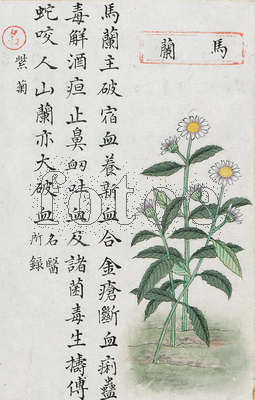 馬蘭
馬蘭主破宿血養新血合金瘡斷血痢蠱
毒解酒疸止鼻衂吐血及諸菌毒生擣傅
蛇咬人山蘭亦大破血名醫所錄
名
紫菊
fotoe